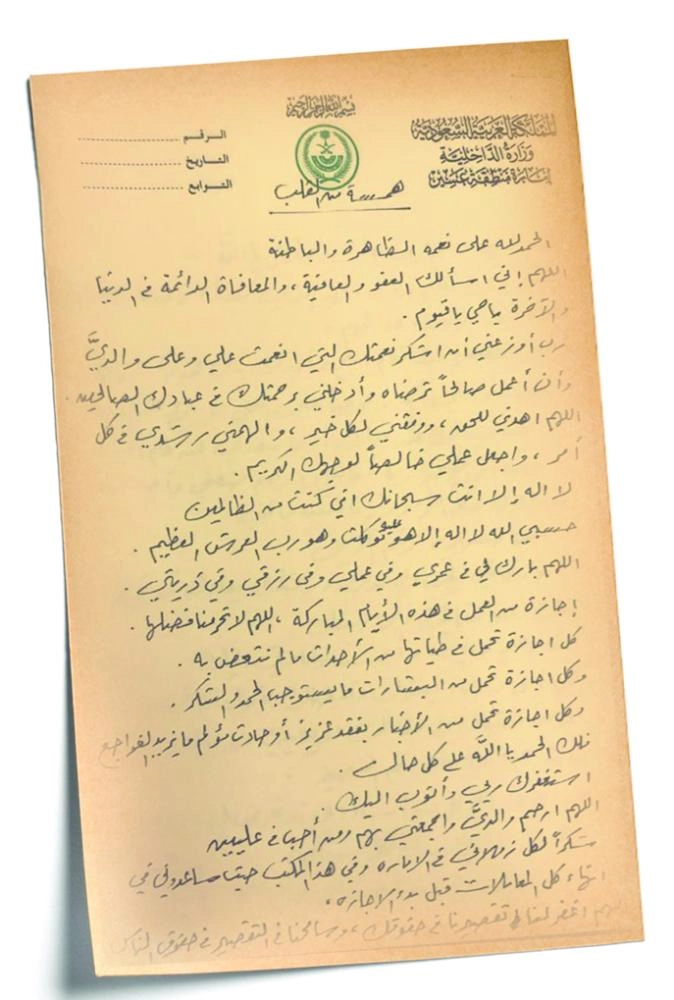 بسم الله الرحمن الرحيم
المملكة العربية السعودية
وزارة الداخلية
إمارة منطقة عسير
الرقم
التاريخ
التوابع
همسة من القلب
الحمد لله على نعمه الظاهرة والباطنة
اللهم إني اسألك العفو والعافية، والمعافاة الدائمة في الدنيا
والآخرة يا حي يا قيوم.
رب أوزعني أن اشكر نعمتك التي انعمت علي وعلى والديَّ
وأن أعمل صالحاً ترضاه وأدخلني برحمتك في عبادك الصالحين.
اللهم اهدني للحق، ووفقني لكل خير، والهمني رشدي في كل
أمر، واجعل عملي خالصاً لوجهك الكريم.
لا اله إلا انت سبحانك اني كنت من الظالمين
حسبي الله لا اله إلا هو عليه توكلت وهو رب العرش العظيم.
اللهم بارك لي في عمري وفي عملي وفي رزقي وفي ذريتي.
إجازة من العمل في هذه الأيام المباركة، اللهم لا تحرمنا فضلها.
كل اجازة تحمل في طياتها من الأحداث مالم نتعض به.
وكل اجازة تحمل من البشارات ما يستوجب الحمد والشكر.
وكل اجازة تحمل من الأخبار بفقد عزيز أو حادث مؤلم ما يزيد الفواجع
فلك الحمد يا الله على كل حال.
استغفرك ربي وأتوب اليك.
اللهم ارحم والديَّ واجمعني بهم ومن أحب في عليين
شكراً لكل زملائي في الاماره وفي هذا المكتب حيث ساعدوني في
انهاء كل المعاملات قبل بدء الاجازه،
اللهم اغفر لنا تقصيرنا في حقوقك، وسامحنا في التقصير في حقوق الناس